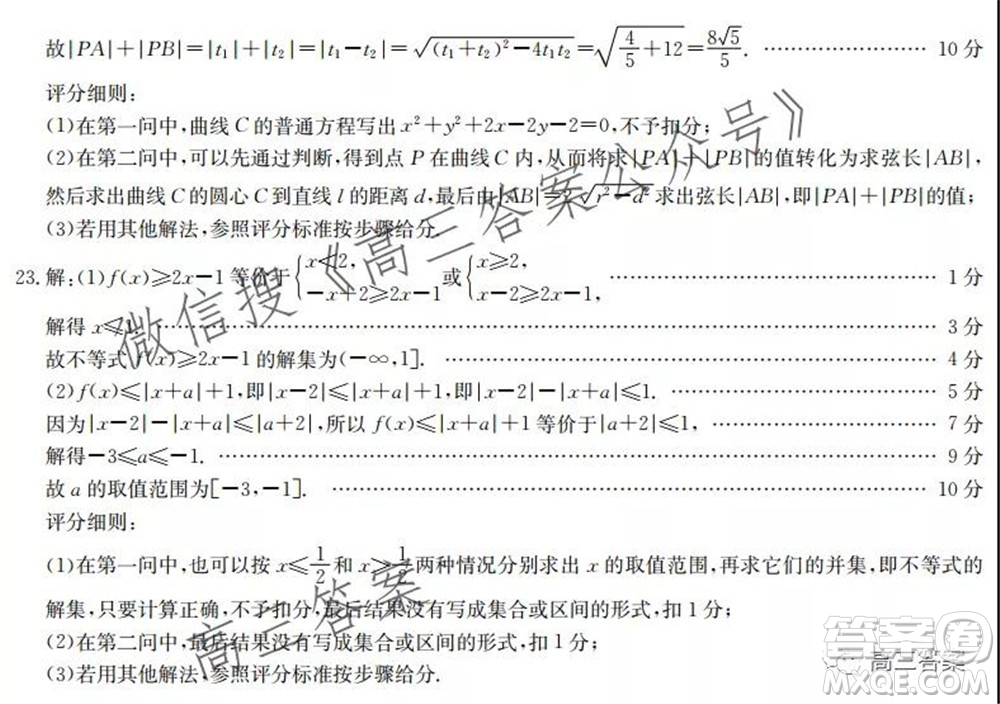 故|PA|+|PB|=|t₁|+|t₂|=|t₁-t₂|=√((t₁+t₂)²-4t₁t₂)=√(4/5+12)=8√5/5. ………………… 10 分
评分细则:
(1)在第一问中,曲线 C 的普通方程写出 x²+y²+2x-2y-2=0,不予扣分;
(2)在第二问中,可以先通过判断,得到点 P 在曲线 C 内,从而将求|PA|+|PB|的值转化为求弦长|AB|,
然后求出曲线 C 的圆心 C 到直线 l 的距离 d,最后由|AB|=2√(r²-d²)求出弦长|AB|,即|PA|+|PB|的值;
(3)若用其他解法,参照评分标准按步骤给分.
23. 解:(1)f(x)≥2x-1 等价于{x<2, -x+2≥2x-1 或{x≥2, x-2≥2x-1, ………………… 1 分
解得 x≤1. ………………… 3 分
故不等式 f(x)≥2x-1 的解集为(-∞,1]. ………………… 4 分
(2)f(x)≤|x+a|+1,即|x-2|≤|x+a|+1,即|x-2|-|x+a|≤1. ………………… 5 分
因为|x-2|-|x+a|≤|a+2|,所以 f(x)≤|x+a|+1 等价于|a+2|≤1, ………………… 7 分
解得-3≤a≤-1. ………………… 9 分
故 a 的取值范围为[-3,-1]. ………………… 10 分
评分细则:
(1)在第一问中,也可以按 x≤1/2 和 x>1/2 两种情况分别求出 x 的取值范围,再求它们的并集,即可求出
解集,只要计算正确,不予扣分,最后结果没有写成集合或区间的形式,扣 1 分;
(2)在第二问中,最后结果没有写成集合或区间的形式,扣 1 分;
(3)若用其他解法,参照评分标准按步骤给分.
微信搜《高三答案公众号》
高三答案
答案卷
高三答案
MXQE.COM